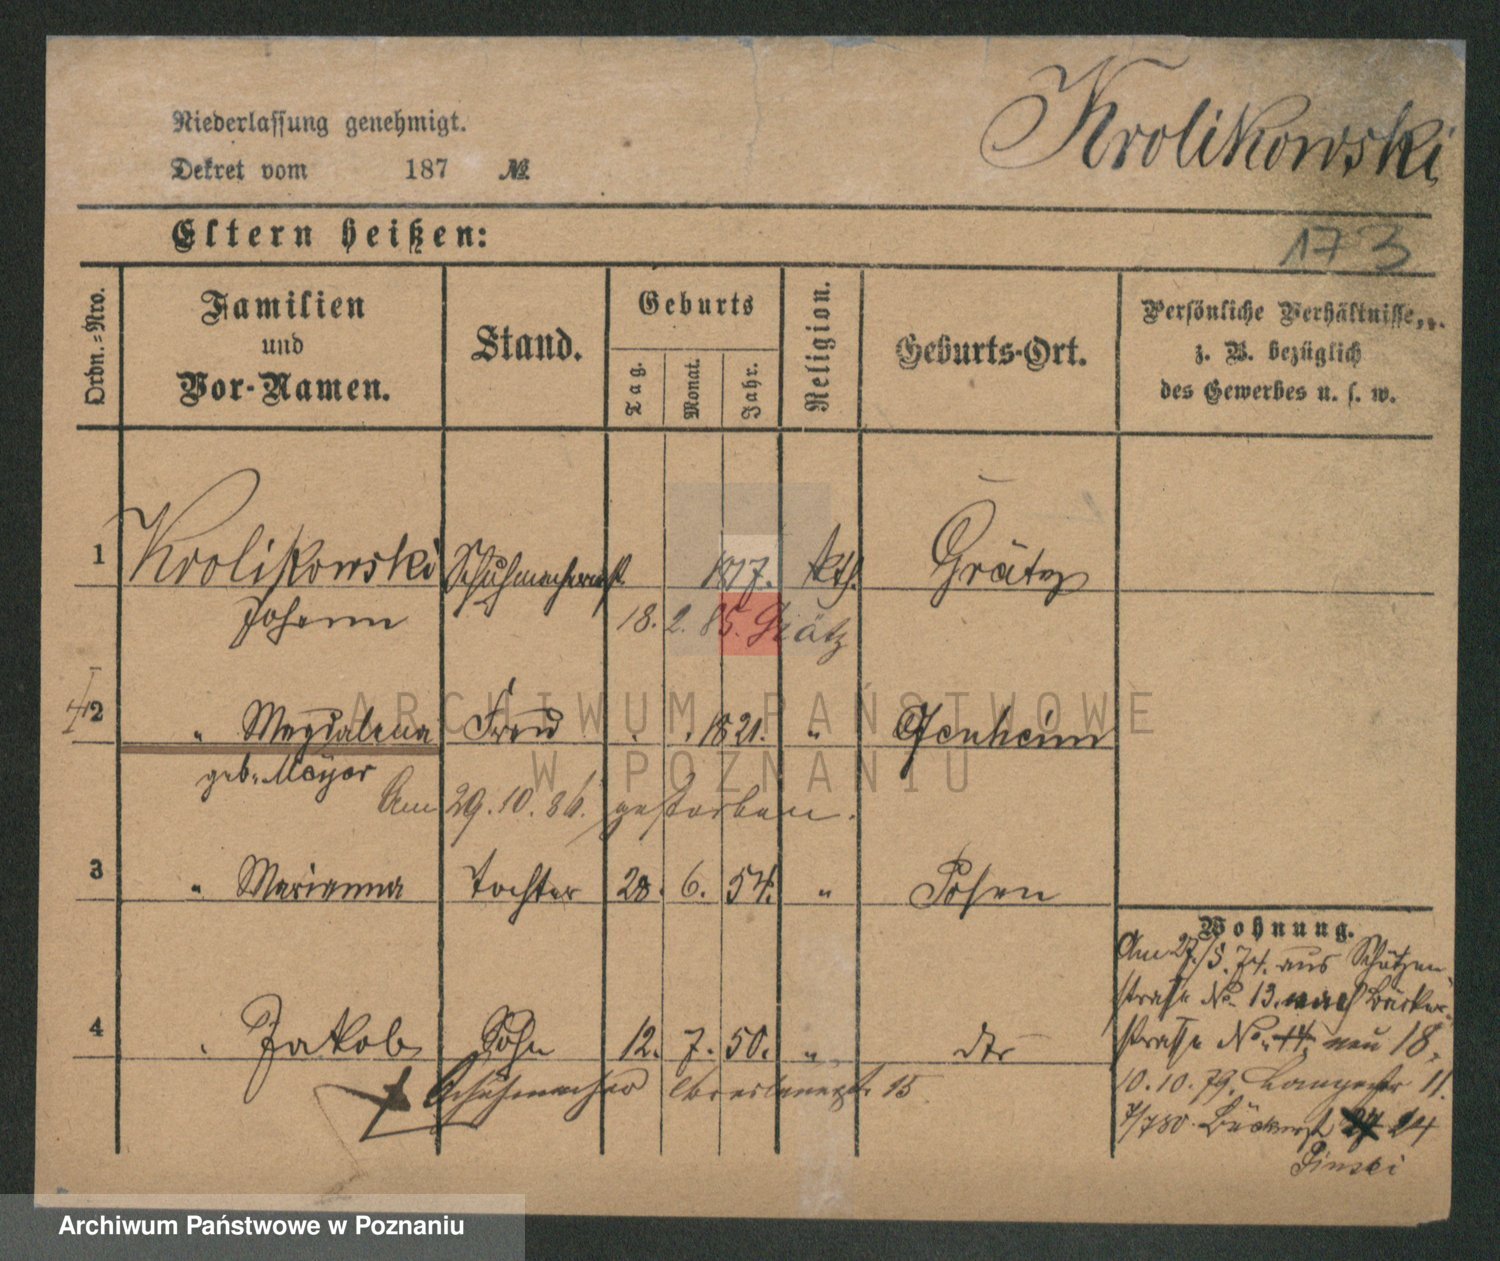 Krolikowski
Niederlassung genehmigt.
Dekret vom 187 №
Eltern heißen:
173
Ordn.-Nro.
Familien und Vor-Namen.
Stand.
Geburts
Tag.
Monat.
Jahr.
Religion.
Geburts-Ort.
Persönliche Verhältnisse,
z. B. bezüglich
des Gewerbes u. s. w.
1 Krolikowski Schuhmacher 1817. kth. Grätz
Johann 18. 2. 85. Grätz
2 " Magdalena Frau 1821. "
geb. Mayer
Am 29. 10. 86. gestorben.
3 " Marianna Tochter 28. 6. 54. " Posen
4 " Jakob Sohn 12. 7. 50. " dto
Schuhmacher 15
Wohnung.
Am 27./5. 74. aus Schützen-
straße No 13. nach Bäcker-
straße No 14. neu 18.
10. 10. 79. 11.
Bäckerst 24
ARCHIWUM PAŃSTWOWE
W POZNANIU
Archiwum Państwowe w Poznaniu